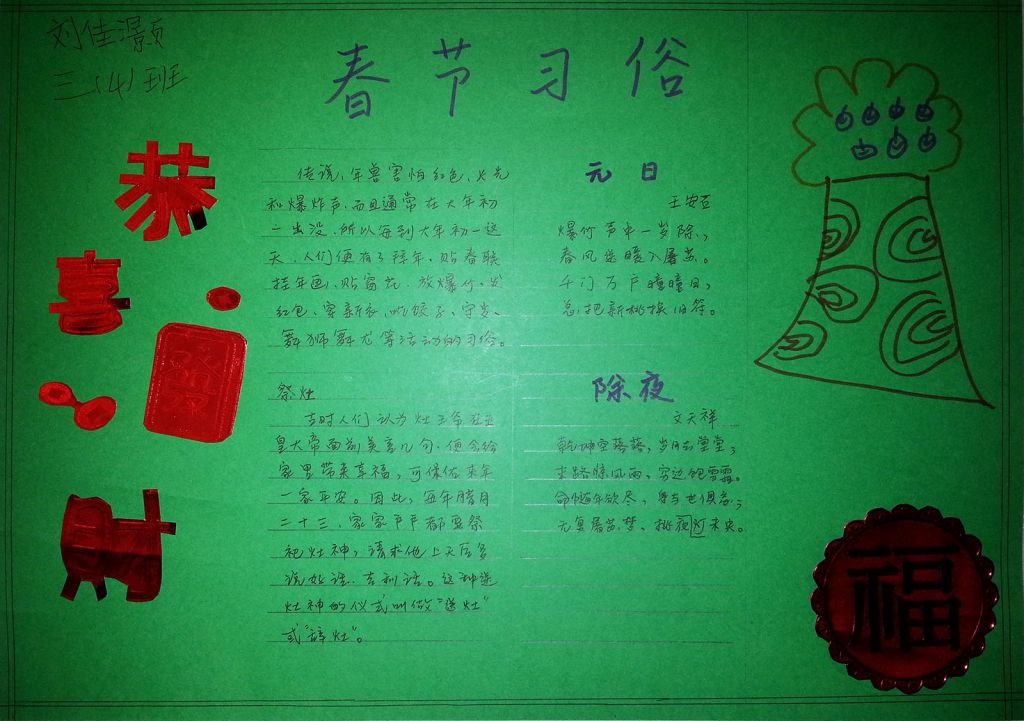 刘佳灏
三(4)班
春节习俗
恭
喜
發
财
传说,年兽害怕红色、火光
和爆炸声,而且通常在大年初
一出没,所以每到大年初一这
天,人们便有了拜年、贴春联
挂年画、贴窗花、放爆竹、发
红包、穿新衣、吃饺子、守岁、
舞狮舞龙等活动的习俗。
祭灶
古时人们认为灶王爷在玉
皇大帝面前美言几句,便会给
家里带来幸福,可保佑来年
一家平安。因此,每年腊月
二十三,家家户户都要祭
祀灶神,请求他上天后多
说好话、吉利话。这种送
灶神的仪式叫做“送灶”
或“辞灶”。
元日
王安石
爆竹声中一岁除,
春风送暖入屠苏。
千门万户瞳瞳日,
总把新桃换旧符。
除夜
文天祥
乾坤空落落,岁月去堂堂;
末路惊风雨,穷边饱雪霜。
命随年欲尽,身与世俱忘;
无复屠苏梦,挑夜灯未央。
福